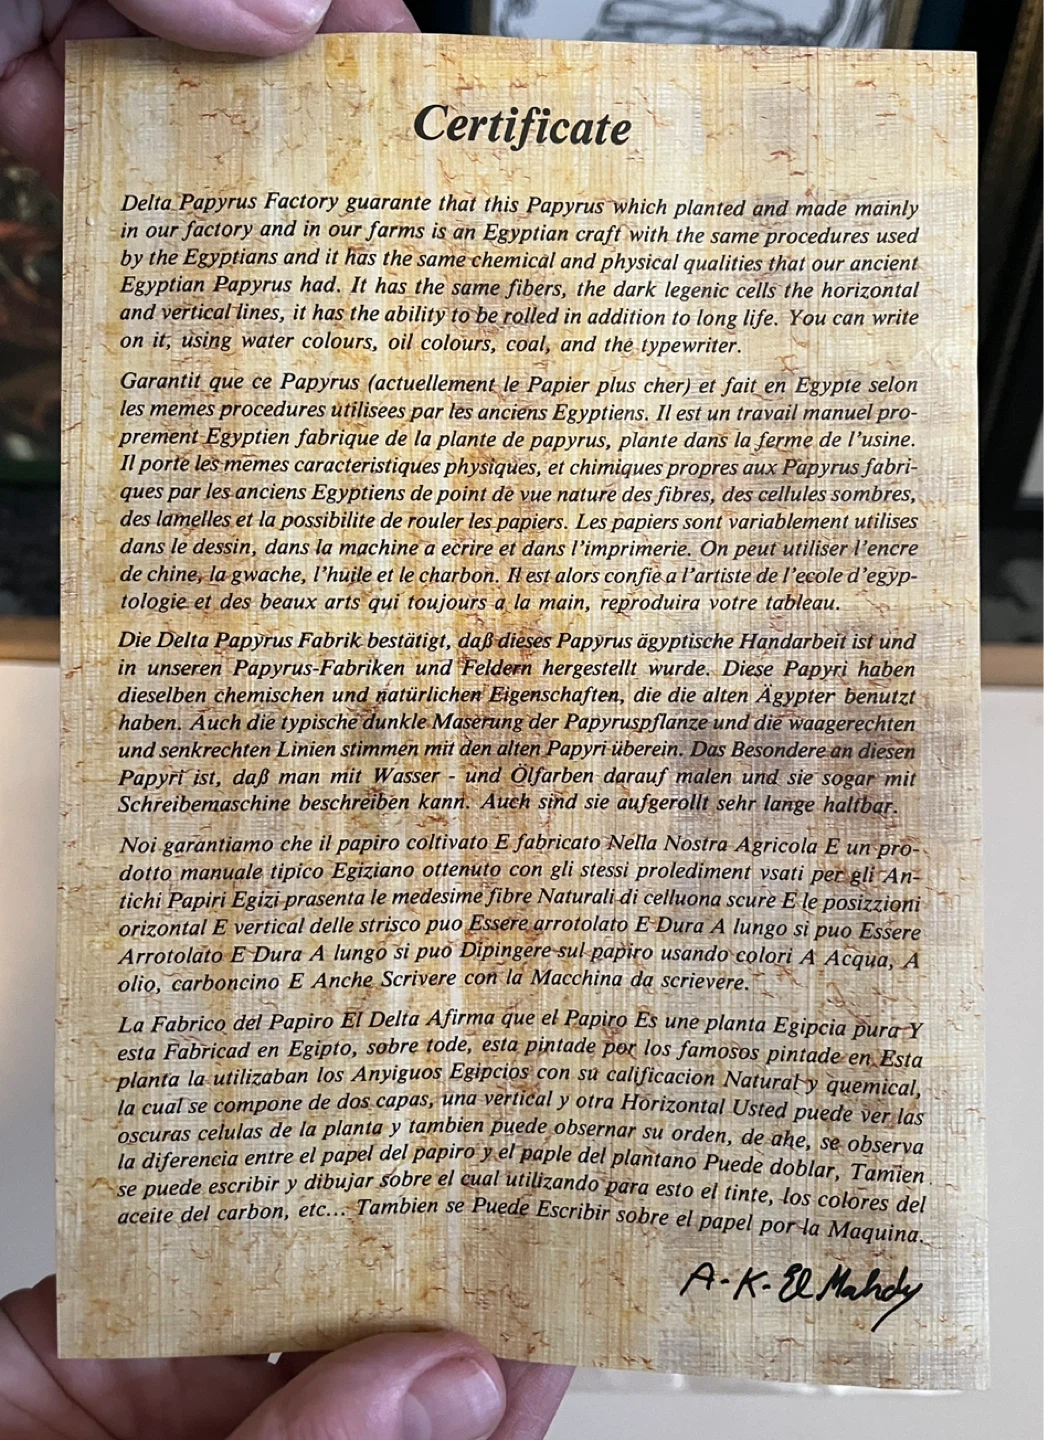 Certificate
Delta Papyrus Factory guarante that this Papyrus which planted and made mainly
in our factory and in our farms is an Egyptian craft with the same procedures used
by the Egyptians and it has the same chemical and physical qualities that our ancient
Egyptian Papyrus had. It has the same fibers, the dark legenic cells the horizontal
and vertical lines, it has the ability to be rolled in addition to long life. You can write
on it, using water colours, oil colours, coal, and the typewriter.
Garantit que ce Papyrus (actuellement le Papier plus cher) et fait en Egypte selon
les memes procedures utilisees par les anciens Egyptiens. Il est un travail manuel pro-
prement Egyptien fabrique de la plante de papyrus, plante dans la ferme de l'usine.
Il porte les memes caracteristiques physiques, et chimiques propres aux Papyrus fabri-
ques par les anciens Egyptiens de point de vue nature des fibres, des cellules sombres,
des lamelles et la possibilite de rouler les papiers. Les papiers sont variablement utilises
dans le dessin, dans la machine a ecrire et dans l'imprimerie. On peut utiliser l'encre
de chine, la gwache, l'huile et le charbon. Il est alors confie a l'artiste de l'ecole d'egyp-
tologie et des beaux arts qui toujours a la main, reproduira votre tableau.
Die Delta Papyrus Fabrik bestätigt, daß dieses Papyrus ägyptische Handarbeit ist und
in unseren Papyrus-Fabriken und Feldern hergestellt wurde. Diese Papyri haben
dieselben chemischen und natürlichen Eigenschaften, die die alten Ägypter benutzt
haben. Auch die typische dunkle Maserung der Papyruspflanze und die waagerechten
und senkrechten Linien stimmen mit den alten Papyri überein. Das Besondere an diesen
Papyri ist, daß man mit Wasser - und Ölfarben darauf malen und sie sogar mit
Schreibemaschine beschreiben kann. Auch sind sie aufgerollt sehr lange haltbar.
Noi garantiamo che il papiro coltivato E fabricato Nella Nostra Agricola E un pro-
dotto manuale tipico Egiziano ottenuto con gli stessi prolediment vsati per gli An-
tichi Papiri Egizi prasenta le medesime fibre Naturali di celluona scure E le posizzioni
orizontal E vertical delle strisco puo Essere arrotolato E Dura A lungo si puo Essere
Arrotolato E Dura A lungo si puo Dipingere sul papiro usando colori A Acqua, A
olio, carboncino E Anche Scrivere con la Macchina da scrievere.
La Fabrico del Papiro El Delta Afirma que el Papiro Es une planta Egipcia pura Y
esta Fabricad en Egipto, sobre tode, esta pintade por los famosos pintade en Esta
planta la utilizaban los Anyiguos Egipcios con su calificacion Natural y quemical,
la cual se compone de dos capas, una vertical y otra Horizontal Usted puede ver las
oscuras celulas de la planta y tambien puede obsernar su orden, de ahe, se observa
la diferencia entre el papel del papiro y el paple del plantano Puede doblar, Tamien
se puede escribir y dibujar sobre el cual utilizando para esto el tinte, los colores del
aceite del carbon, etc... Tambien se Puede Escribir sobre el papel por la Maquina.
A-K-El Mahdy